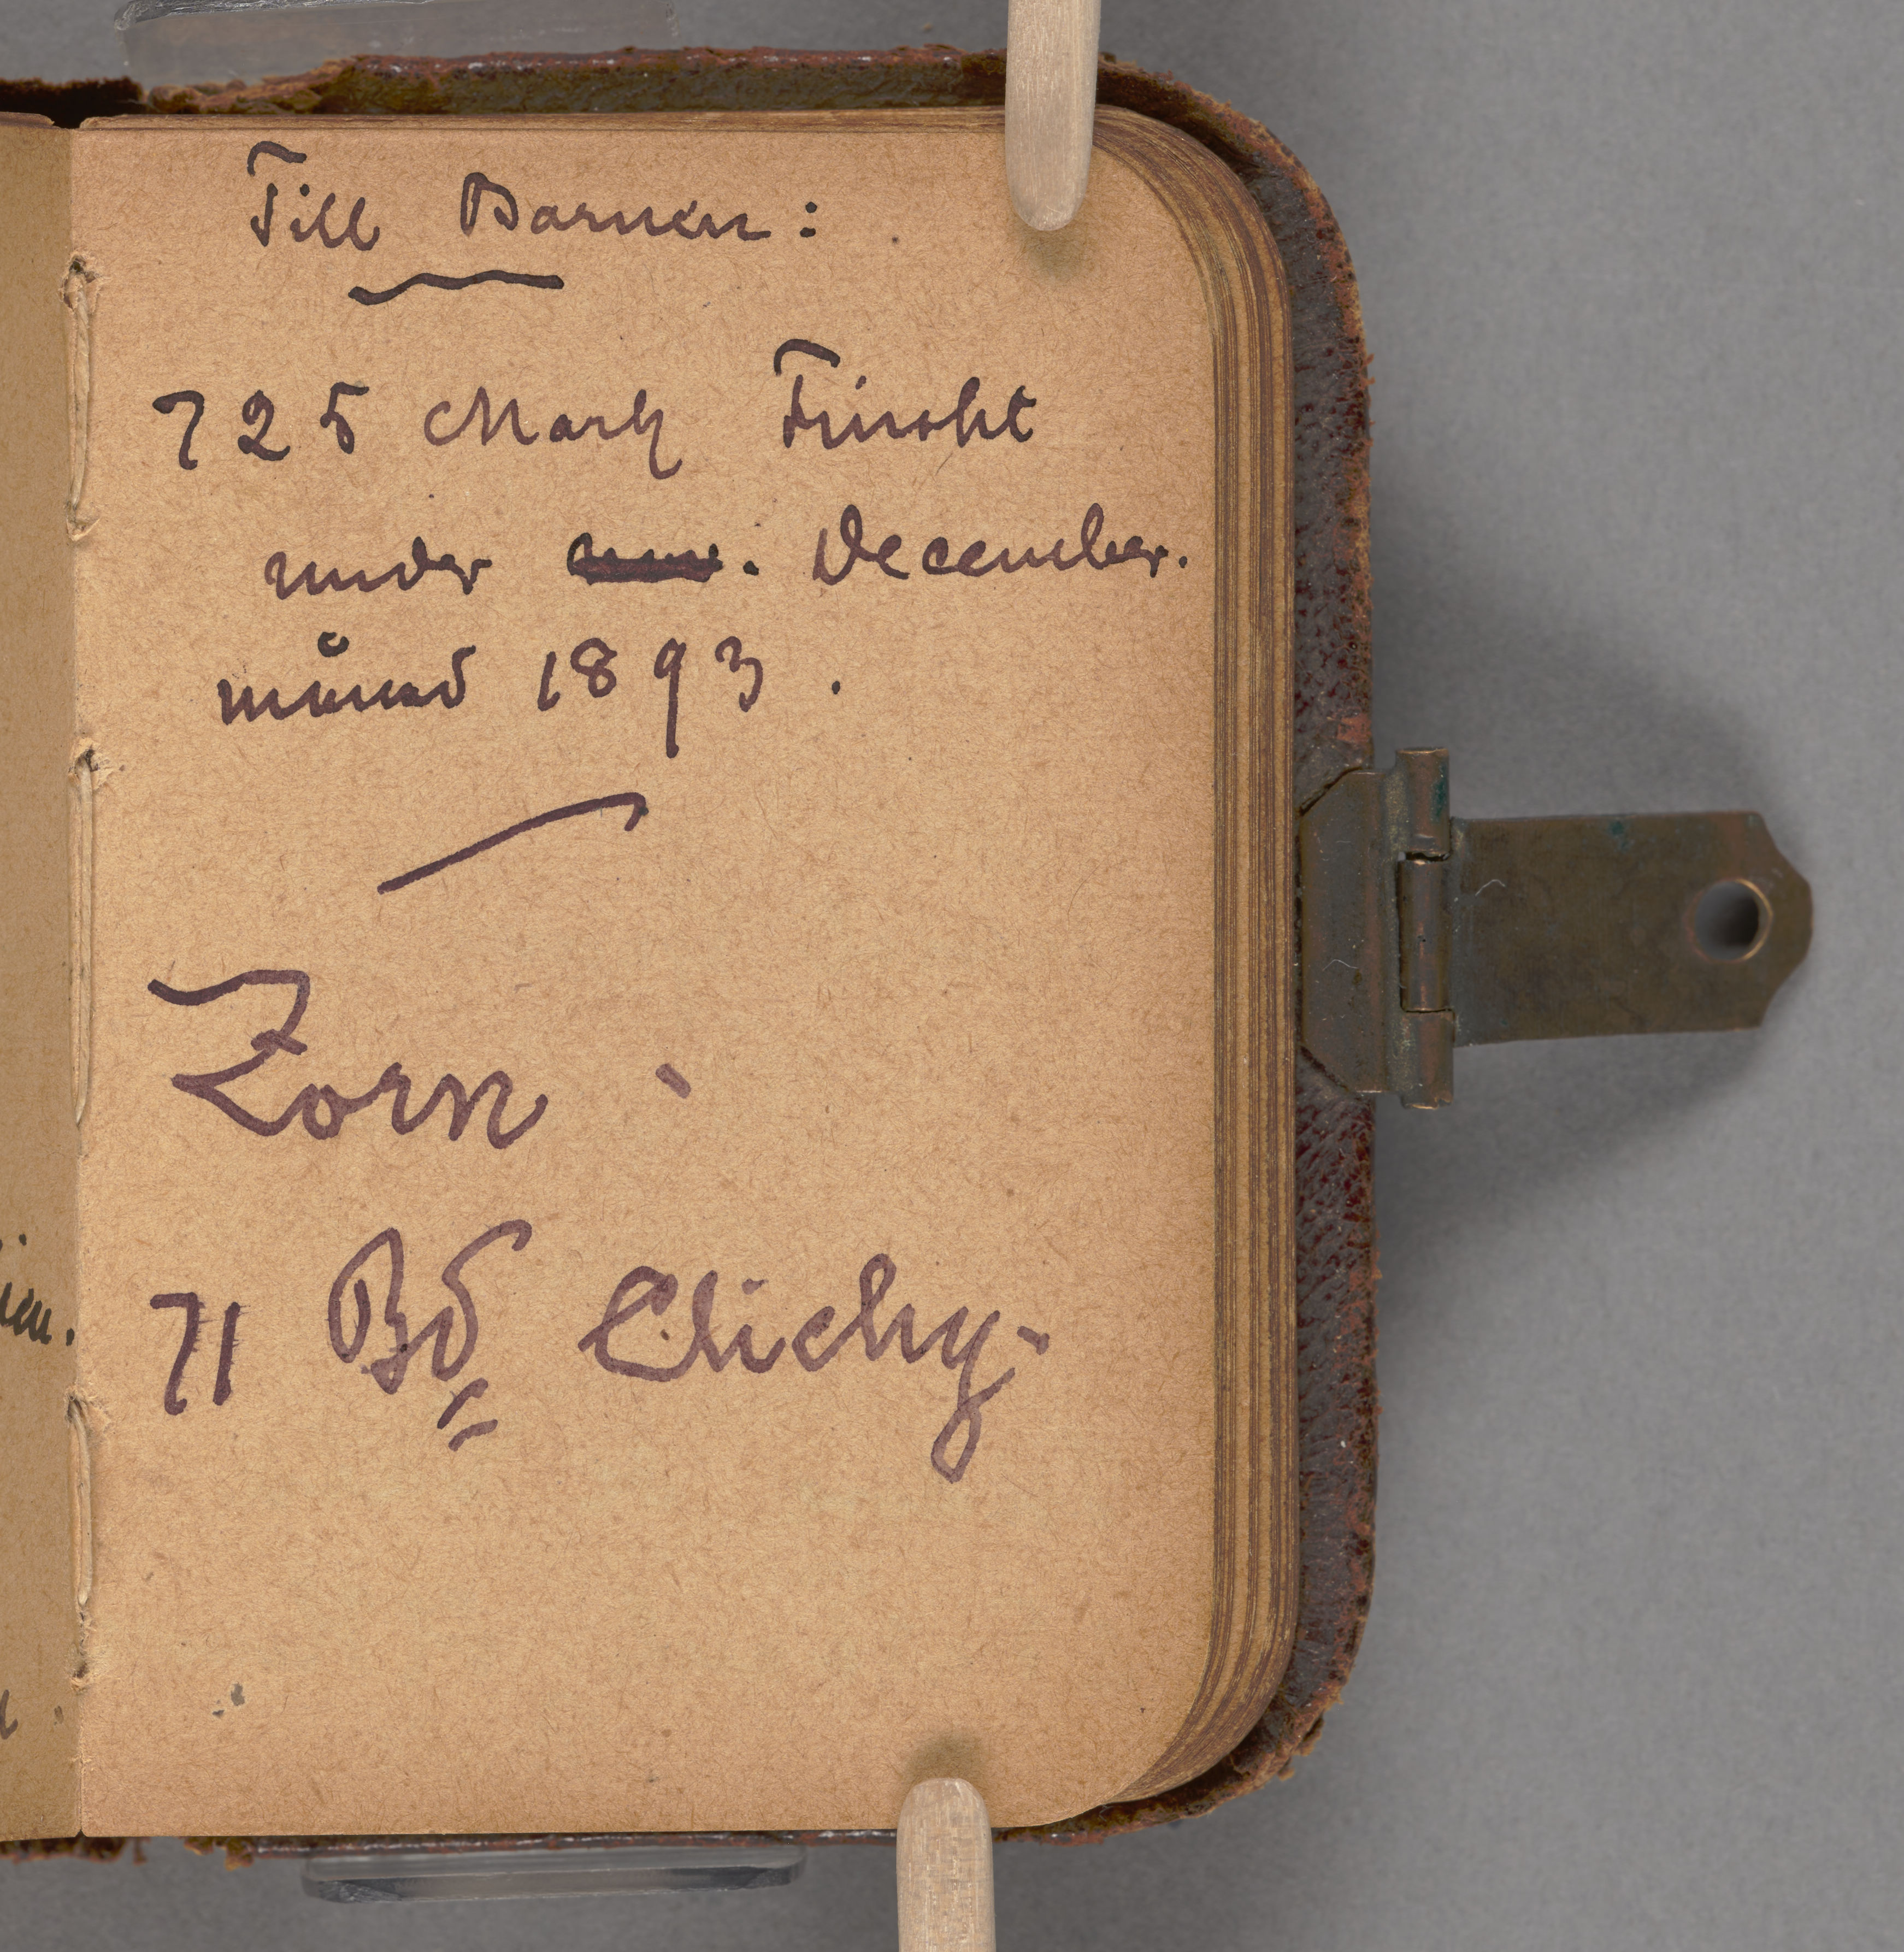 Till Barnen:
725 Mark Finskt
under . December.
månad 1893 .
Zorn .
71 Bd Clichy.